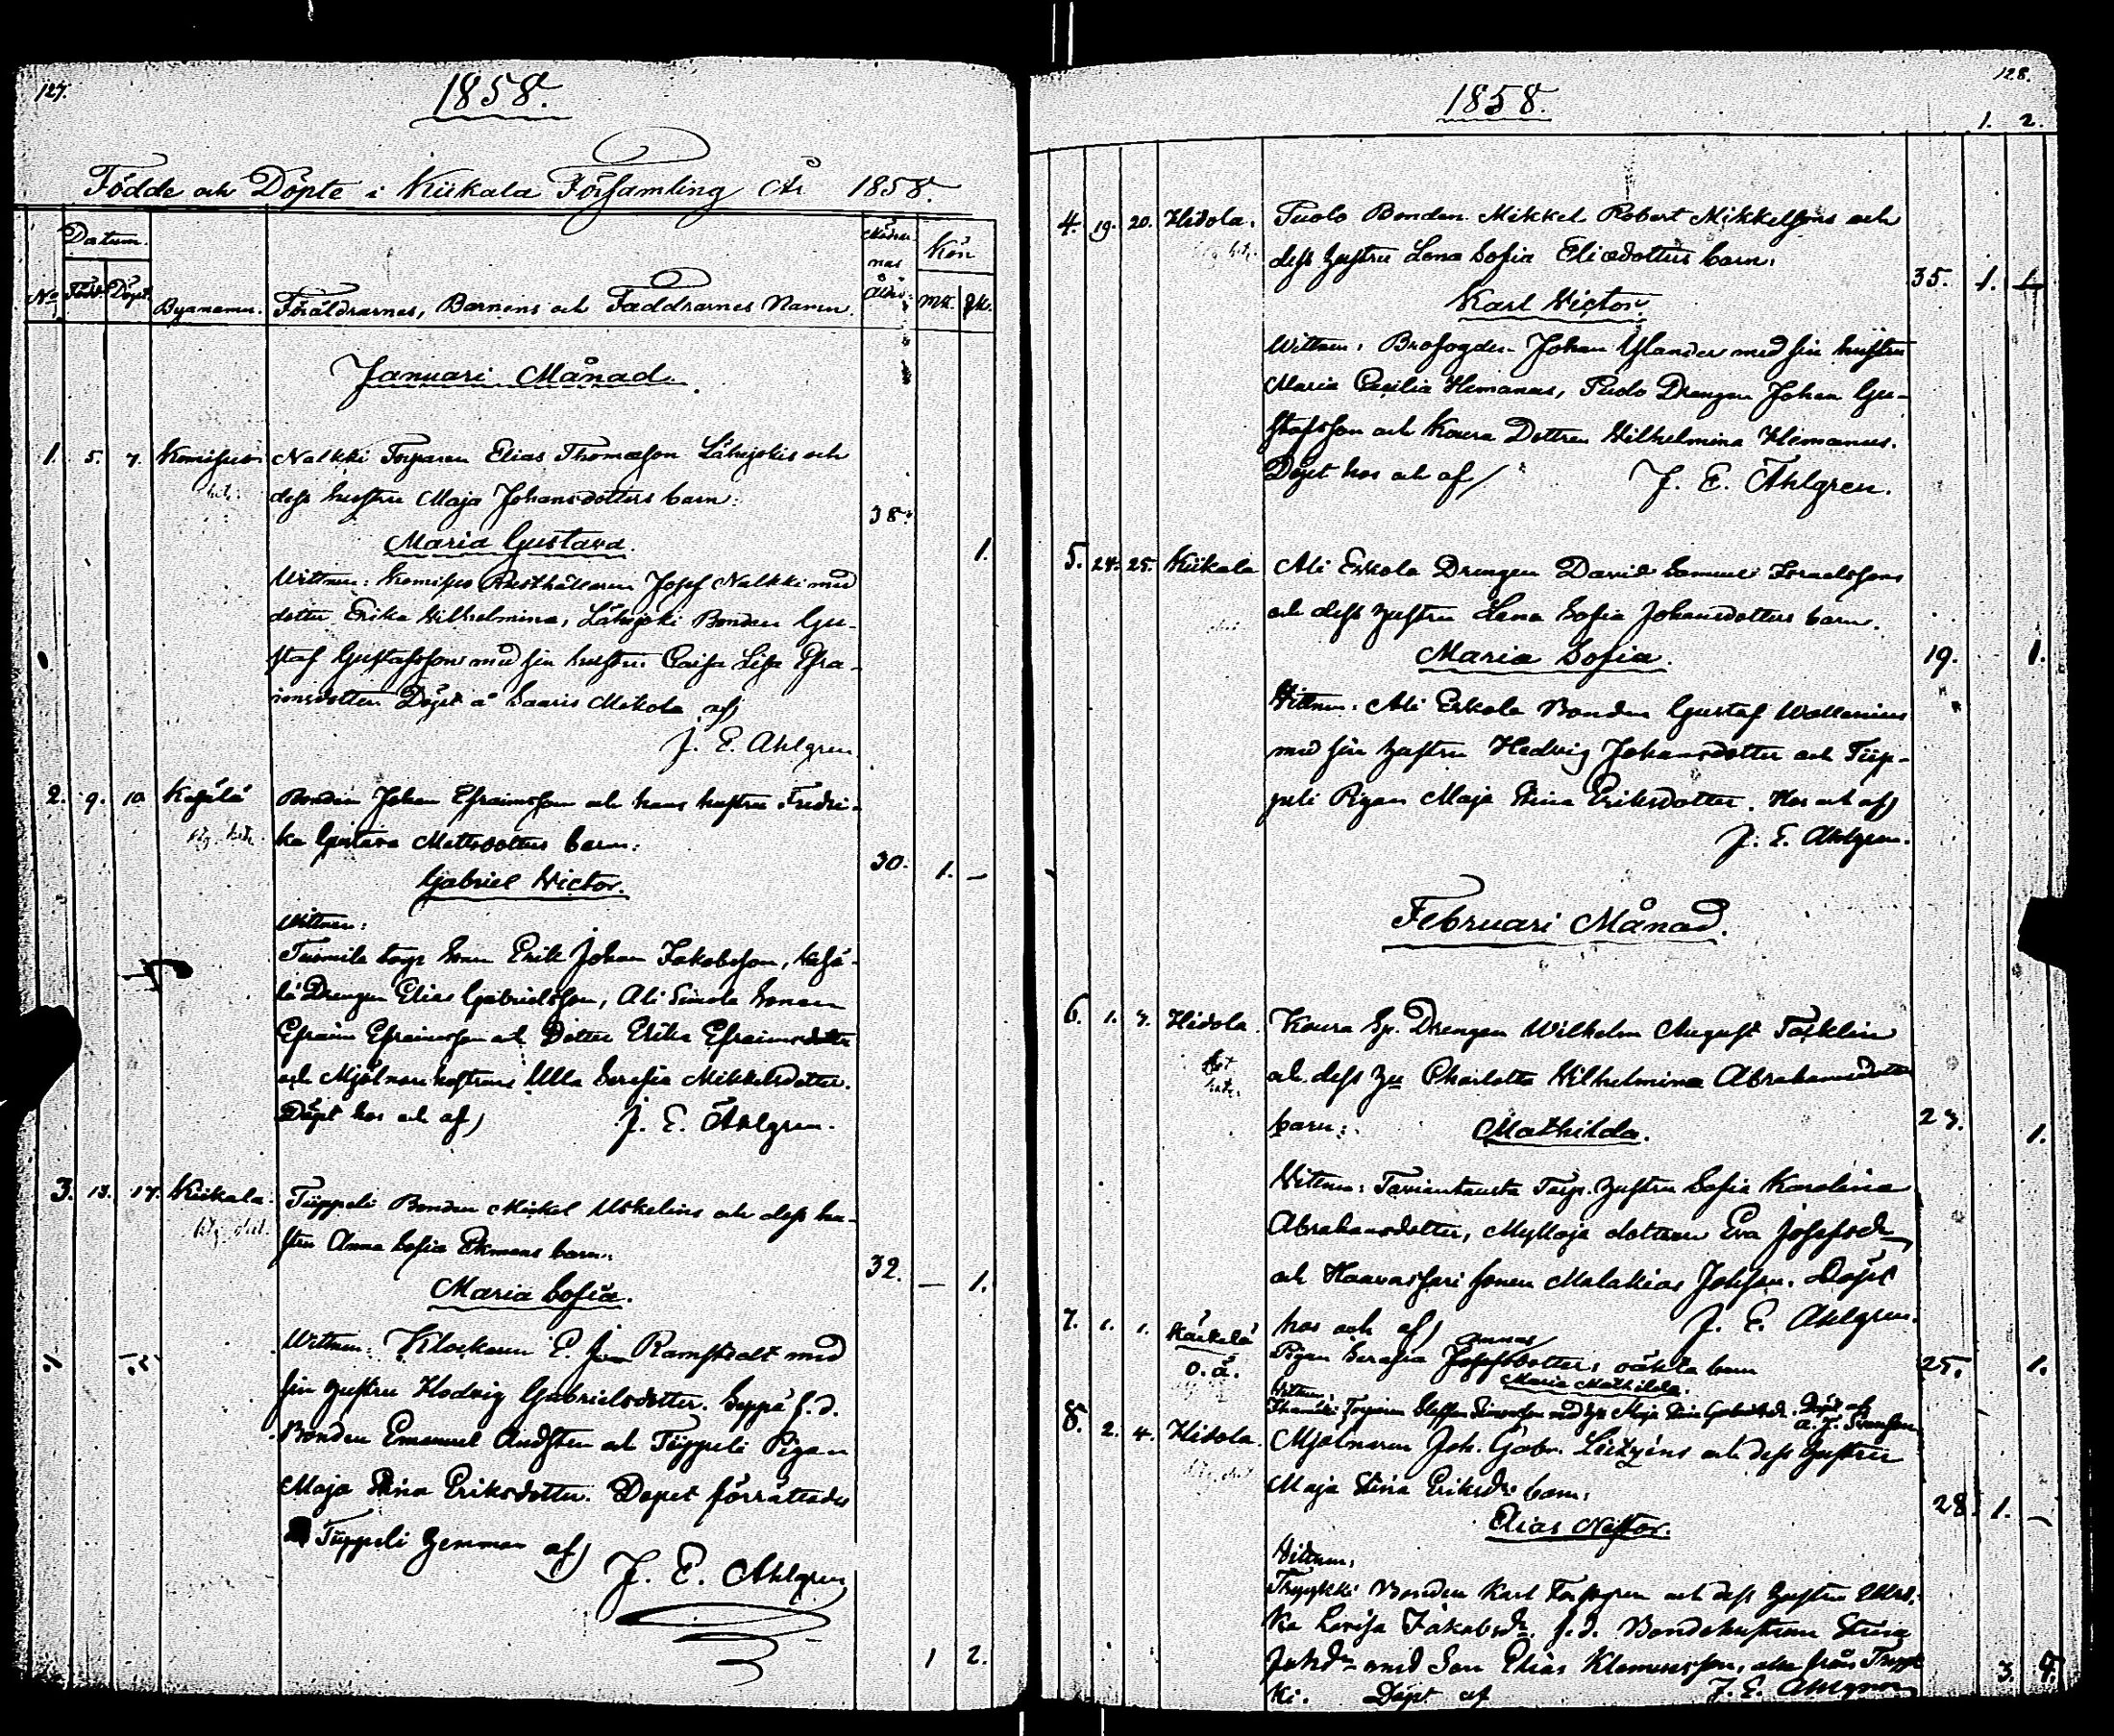 127.
1858.
Födde och Döpte i Kiikala Församling År 1858.
Datum.
Mödrarnas Ålder.
Kön
No Född. Döpt. Byanamn. Föräldrarnes, Barnens och Faddrarnes Namn mk. qk.
Januari Månad.
1. 5. 7. Komisuo Nalkki Torparen Elias Thomasson Lähijokis och
dess hustru Maja Johansdotters barn:
38.
Maria Gustava.
1.
Wittnen: Komisuo Rusthållaren Josef Nalkki med
dotter Erika Wilhelmina, Lähijoki Bonden Gu-
staf Gustafsson med sin hustru Caisa Lisa Efra-
imsdotter Döpt å Saaris Mikola af
J. E. Ahlgren
2. 9. 10 Bonden Johan Efraimsson och hans hustru Fredri-
ka Gustava Mattsdotters barn:
30. 1. –
Gabriel Wictor.
Wittnen:
Torp Sonen Erik Johan Jakobsson,
Drengen Elias Gabrielsson, Ali Simola Sonen
Efraim Efraimsson och Dotter Erika Efraimsdotter
och Mjölnare hustrun Ulla Serafia Mikkelsdotter.
Döpt hos och af) J. E. Ahlgren.
3. 17. Kiikala. Tiippeli Bonden Mickel Uskelins och dess hu-
stru Anna Sofia Ekmans barn:
32. – 1.
Maria Sofia.
Wittnen: Klockaren E. Ramstedt med
sin hustru Hedvig Gabrielsdotter. Seppä f. d.
Bonden Emanuel och Tiippeli Pigan
Maja Stina Eriksdotter. Dopet förrättades
Tiippeli hemman af)
J. E. Ahlgren
1 2.
128.
1858.
1. 2.
4. 19. 20. Hidola. Puolo Bonden Mikkel Robert Mikkelsons och
dess hustru Lena Sofia Eliædotters barn:
35. 1. 1
Karl Wictor.
Wittnen: Brofogden Johan Ylander med sin hustru
Maria Cecilia Hemanus, Puolo Drengen Johan Gu-
stafsson och Koura Dottren Wilhelmina Hemanus.
Döpt hos och af) J. E. Ahlgren.
5. 24. 25. Kiikala Ali Eskola Drengen David Samuel Israelssons
och dess hustru Lena Sofia Johansdotters barn.
Maria Sofia.
19. 1.
Wittnen: Ali Eskola Bonden Gustaf Wallenius
med sin hustru Hedvig Johansdotter och Tiip-
peli Pigan Maja Stina Eriksdotter. Hos och af)
J. E. Ahlgren.
Februari Månad.
6. 1. Hidola. Koura Sp. Drengen Wilhelm August
och dess hu Charlotta Wilhelmina Abrahamsdotters
barn: Mathilda.
1.
Wittnen: Torp. hustru Sofia Karolina
Abrahamsdotter, Mylloja dottren Eva Josefsdr
och sonen Malakias Johsson. Döpt
hos och af) J. E. Ahlgren.
7. 1. 1. o.ä. Pigan Serafia Josefsdotters oäkta barn
25. 1.
Maria Mathilda.
Wittnen: Torparen Staffan Simonsson med hu Maja Stina Döpt af
8. 2. 4. Hidola. Mjölnaren Joh. Gabr. och dess hustru
Maja Stina Eriksdrs barn:
28. 1. –
Elias Nestor.
Wittnen:
Bonden Karl och dess hustru Ulri-
ka Lovisa Jakobsdr. f. d. Bondehustrun Stina
med Son Elias Klemensson, alla från
ki. Döpt af J. E. Ahlgren
3.